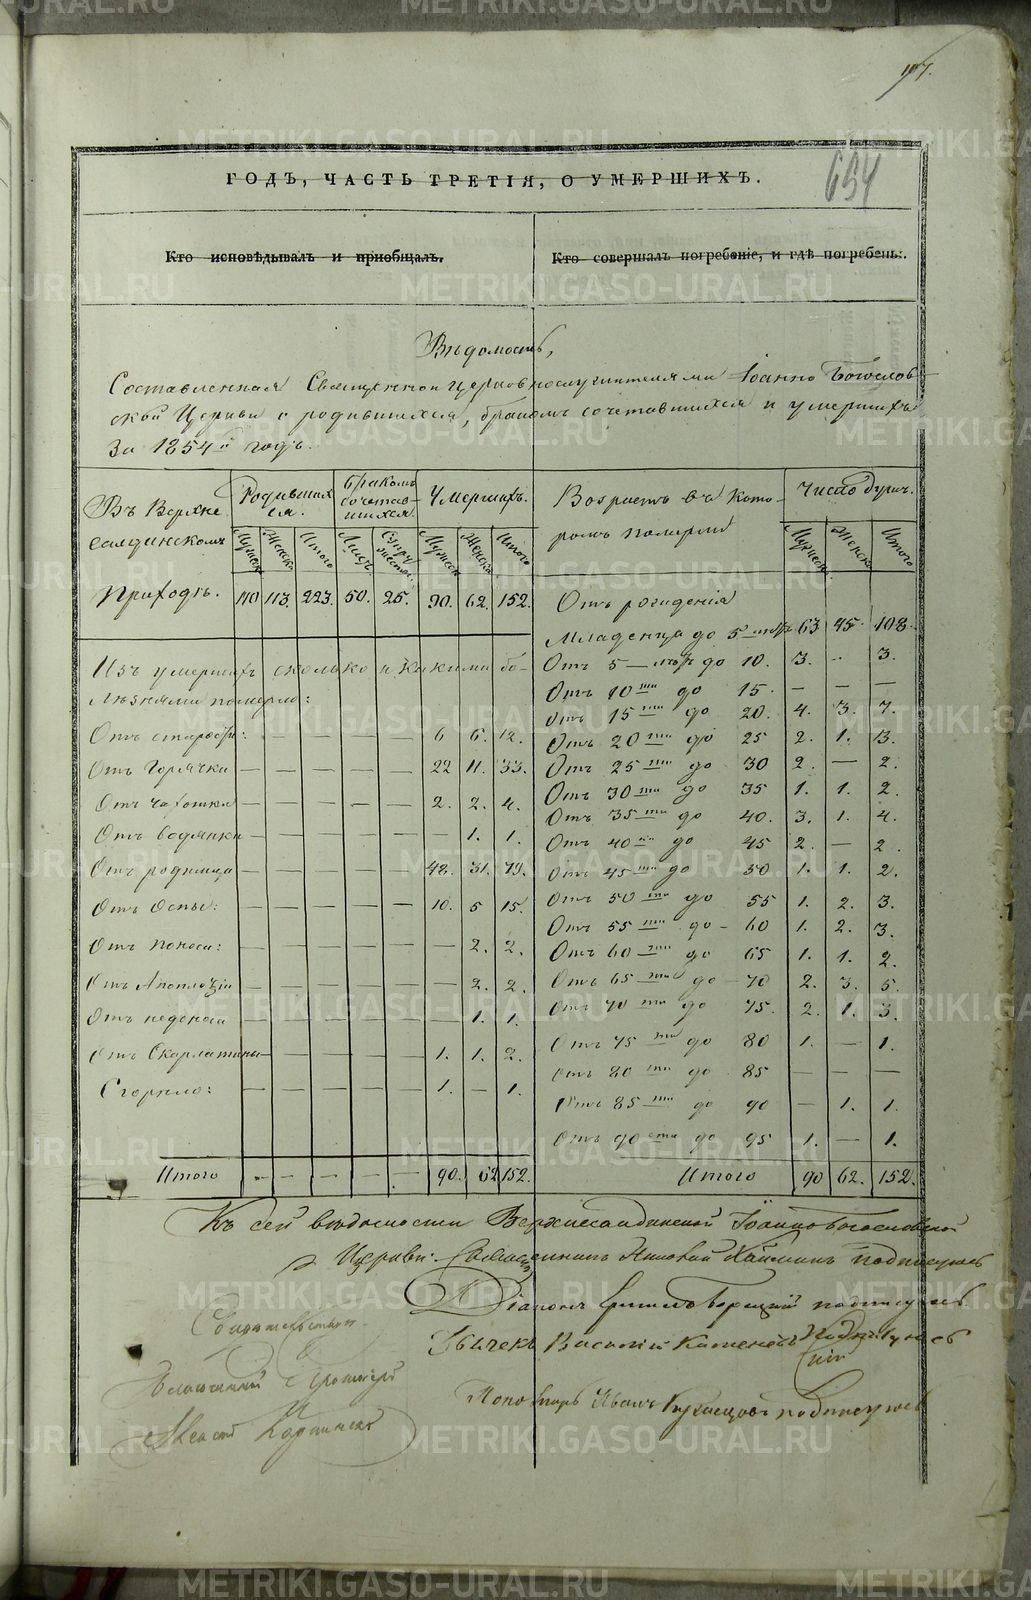 107.
654
ГОДЪ, ЧАСТЬ ТРЕТІЯ, О УМЕРШИХЪ.
Кто исповѣдывалъ и пріобщалъ. Кто совершалъ погребеніе, и гдѣ погребены.
Вѣдомость,
Составленная Священно и церковнослужителями Іоанно Богослов-
ской Церкви о родившихся, бракомъ сочетавшихся и умершихъ
За 1854й годъ.
Въ Верхне салдинскомъ Приходѣ. Родившихся. Бракомъ сочетавшихся. Умершихъ. Возрастъ въ которомъ померли Число душъ.
Мужеск Женска Итого Лицъ Супружествъ Мужеск Женска Итого Мужеск Женска Итого
110 113. 223. 50. 25. 90. 62. 152.
Отъ рожденія
Младенца до 5 63 45. 108.
Изъ умершихъ сколько и какими бо-
лѣзнями померло:
Отъ 5 — до 10. 3. - 3.
Отъ 10ти до 15. — — —
Отъ старости: — — — — — 6 6. 12.
Отъ 15ти до 20. 4. 3. 7.
Отъ 20ти до 25 2. 1. 3.
Отъ Горячки — — — — — 22 11. 33.
Отъ 25ти до 30 2. — 2.
Отъ 30ти до 35 1. 1. 2.
Отъ Чахотки — — — — — 2. 2. 4.
Отъ 35ти до 40. 3. 1. 4.
Отъ водянки — — — — — — 1. 1.
Отъ 40ти до 45 2. — 2.
Отъ родимца — — — — — 48. 31. 79.
Отъ 45ти до 50 1. 1. 2.
Отъ Оспы: — — — — — 10. 5 15.
Отъ 50ти до 55 1. 2. 3.
Отъ 55ти до - 60 1. 2. 3.
Отъ поноса: — — — — — — 2. 2.
Отъ 60ти до 65 1. 1. 2.
Отъ Апоплексіи — — — — — — 2. 2.
Отъ 65ти до - 70 2. 3. 5.
Отъ 70ти до 75. 2. 1. 3.
— — — — — — 1. 1.
Отъ 75ти до 80 1. — 1.
Отъ Скарлатины — — — — — 1. 1. 2.
Отъ 80ти до 85 — — —
Сгорѣло: — — — — — 1. — 1.
Отъ 85ти до 90 — 1. 1.
Отъ 90ста до 95 1. — 1.
Итого - - - - - 90. 62 152. Итого 90 62. 152.
Къ сей вѣдомости Верхнесалдинской Іоанно Богословской
Церкви: Священникъ подписуюсь
Діаконъ подписуюсь
Дьячекъ Василій подписуюсь
Пономарь Иванъ подписуюсь
Свидѣтельствовалъ
Благочинный
METRIKI.GASO-URAL.RU